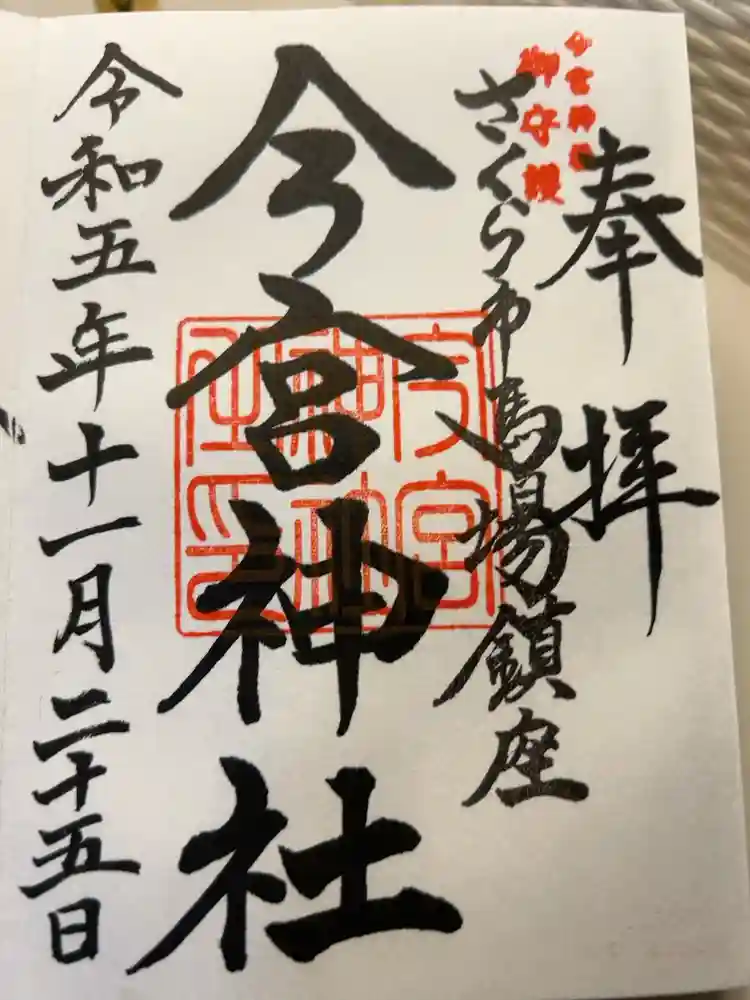 奉拝
今宮神社
御守護
さくら市馬場鎮座
今宮神社
今宮神社印
令和五年十一月二十五日